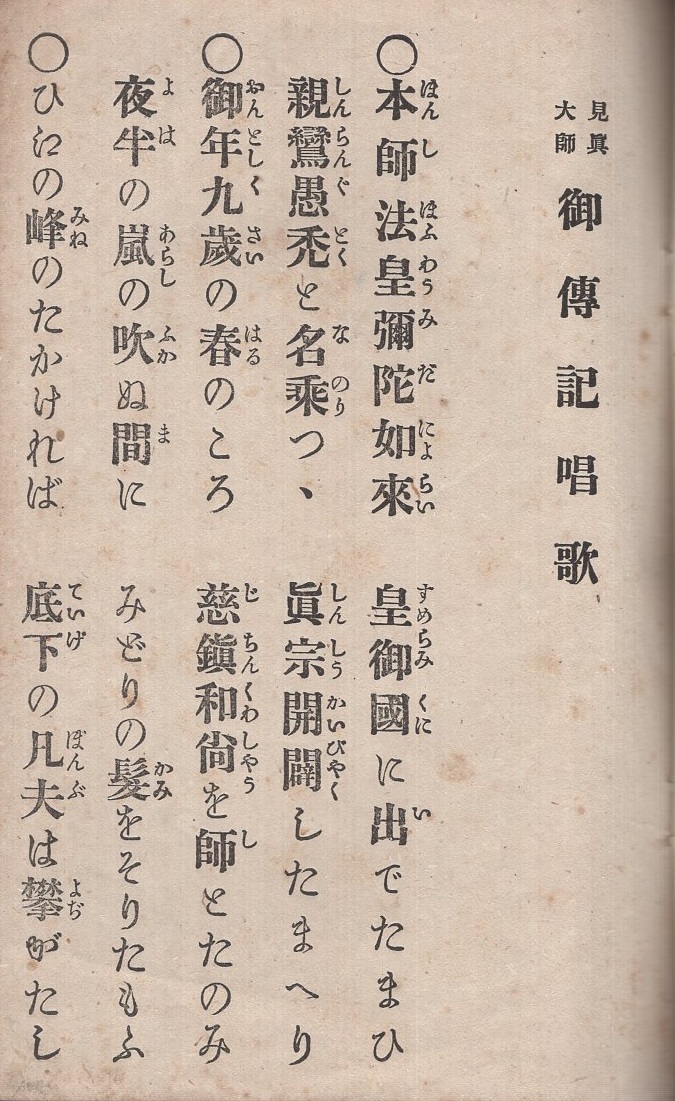 見眞大師 御傳記唱歌
○本師法皇彌陀如來 皇御國に出でたまひ
親鸞愚禿と名乘つヽ 眞宗開闢したまへり
○御年九歲の春のころ 慈鎭和尙を師とたのみ
夜半の嵐の吹ぬ間に みどりの髮をそりたもふ
○ひ江の峰のたかければ 底下の凡夫は攀がたし